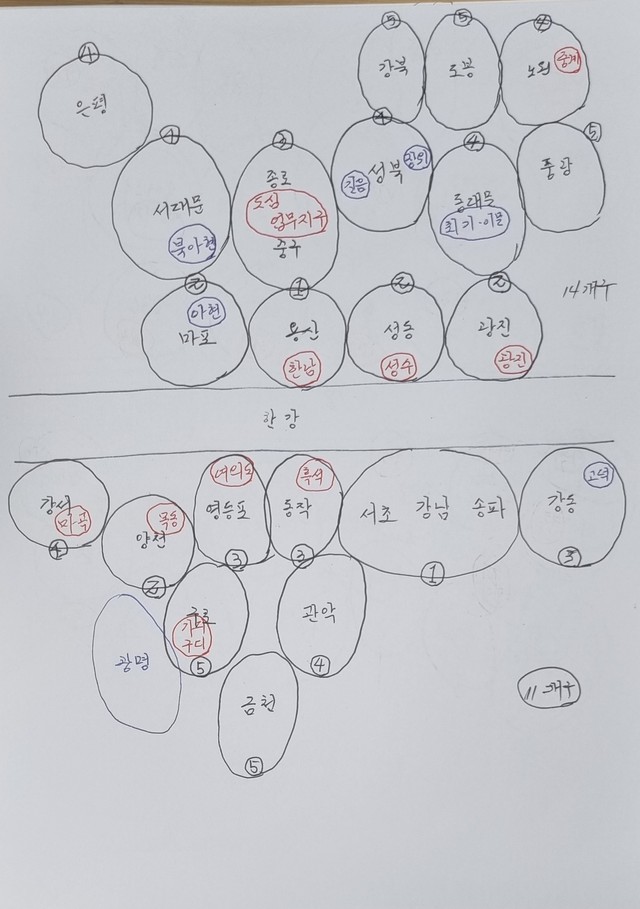 ⑤ ⑤ ④
강북 도봉 노원 중계
④
은평
④ ② ④ ④ ⑤
서대문 북아현
종로
도심
업무지구
중구
길음 성북 장위
동대문
회기·이문
중랑
② ① ② ②
아현
마포
용산
한남
성동
성수
광진
광진
14개구
한강
강서
마곡
④
목동
양천
②
여의도
영등포
③
흑석
동작
③
서초 강남 송파
①
고덕
강동
③
광명
구로
가디
구디
⑤
관악
④
금천
⑤
11개구